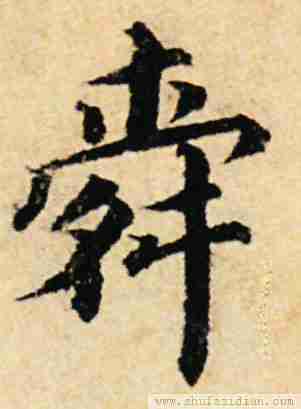 舜
www.shufazidian.com